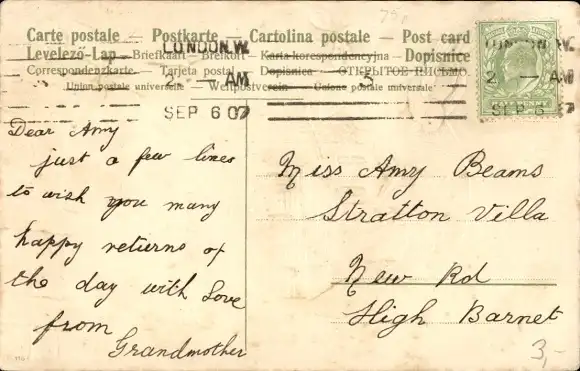 75,-
Carte postale — Postkarte — Cartolina postale — Post card
Levelező-Lap — Briefkaart — Brefkort — Karta korespondencyjna — Dopisnice
Correspondenzkarte — Tarjeta postal — Dopisnica — ОТКРЫТОЕ ПИСЬМО
Union postale universelle — Weltpostverein — Unione postale universale
LONDON.W.
AM
SEP 6 07
5
LONDON.W.
2 — AM
SEP 6 07
Dear Amy
just a few lines
to wish you many
happy returns of
the day with Love
from
Grandmother
Miss Amy Beams
Stratton Villa
New Rd
High Barnet
3,-